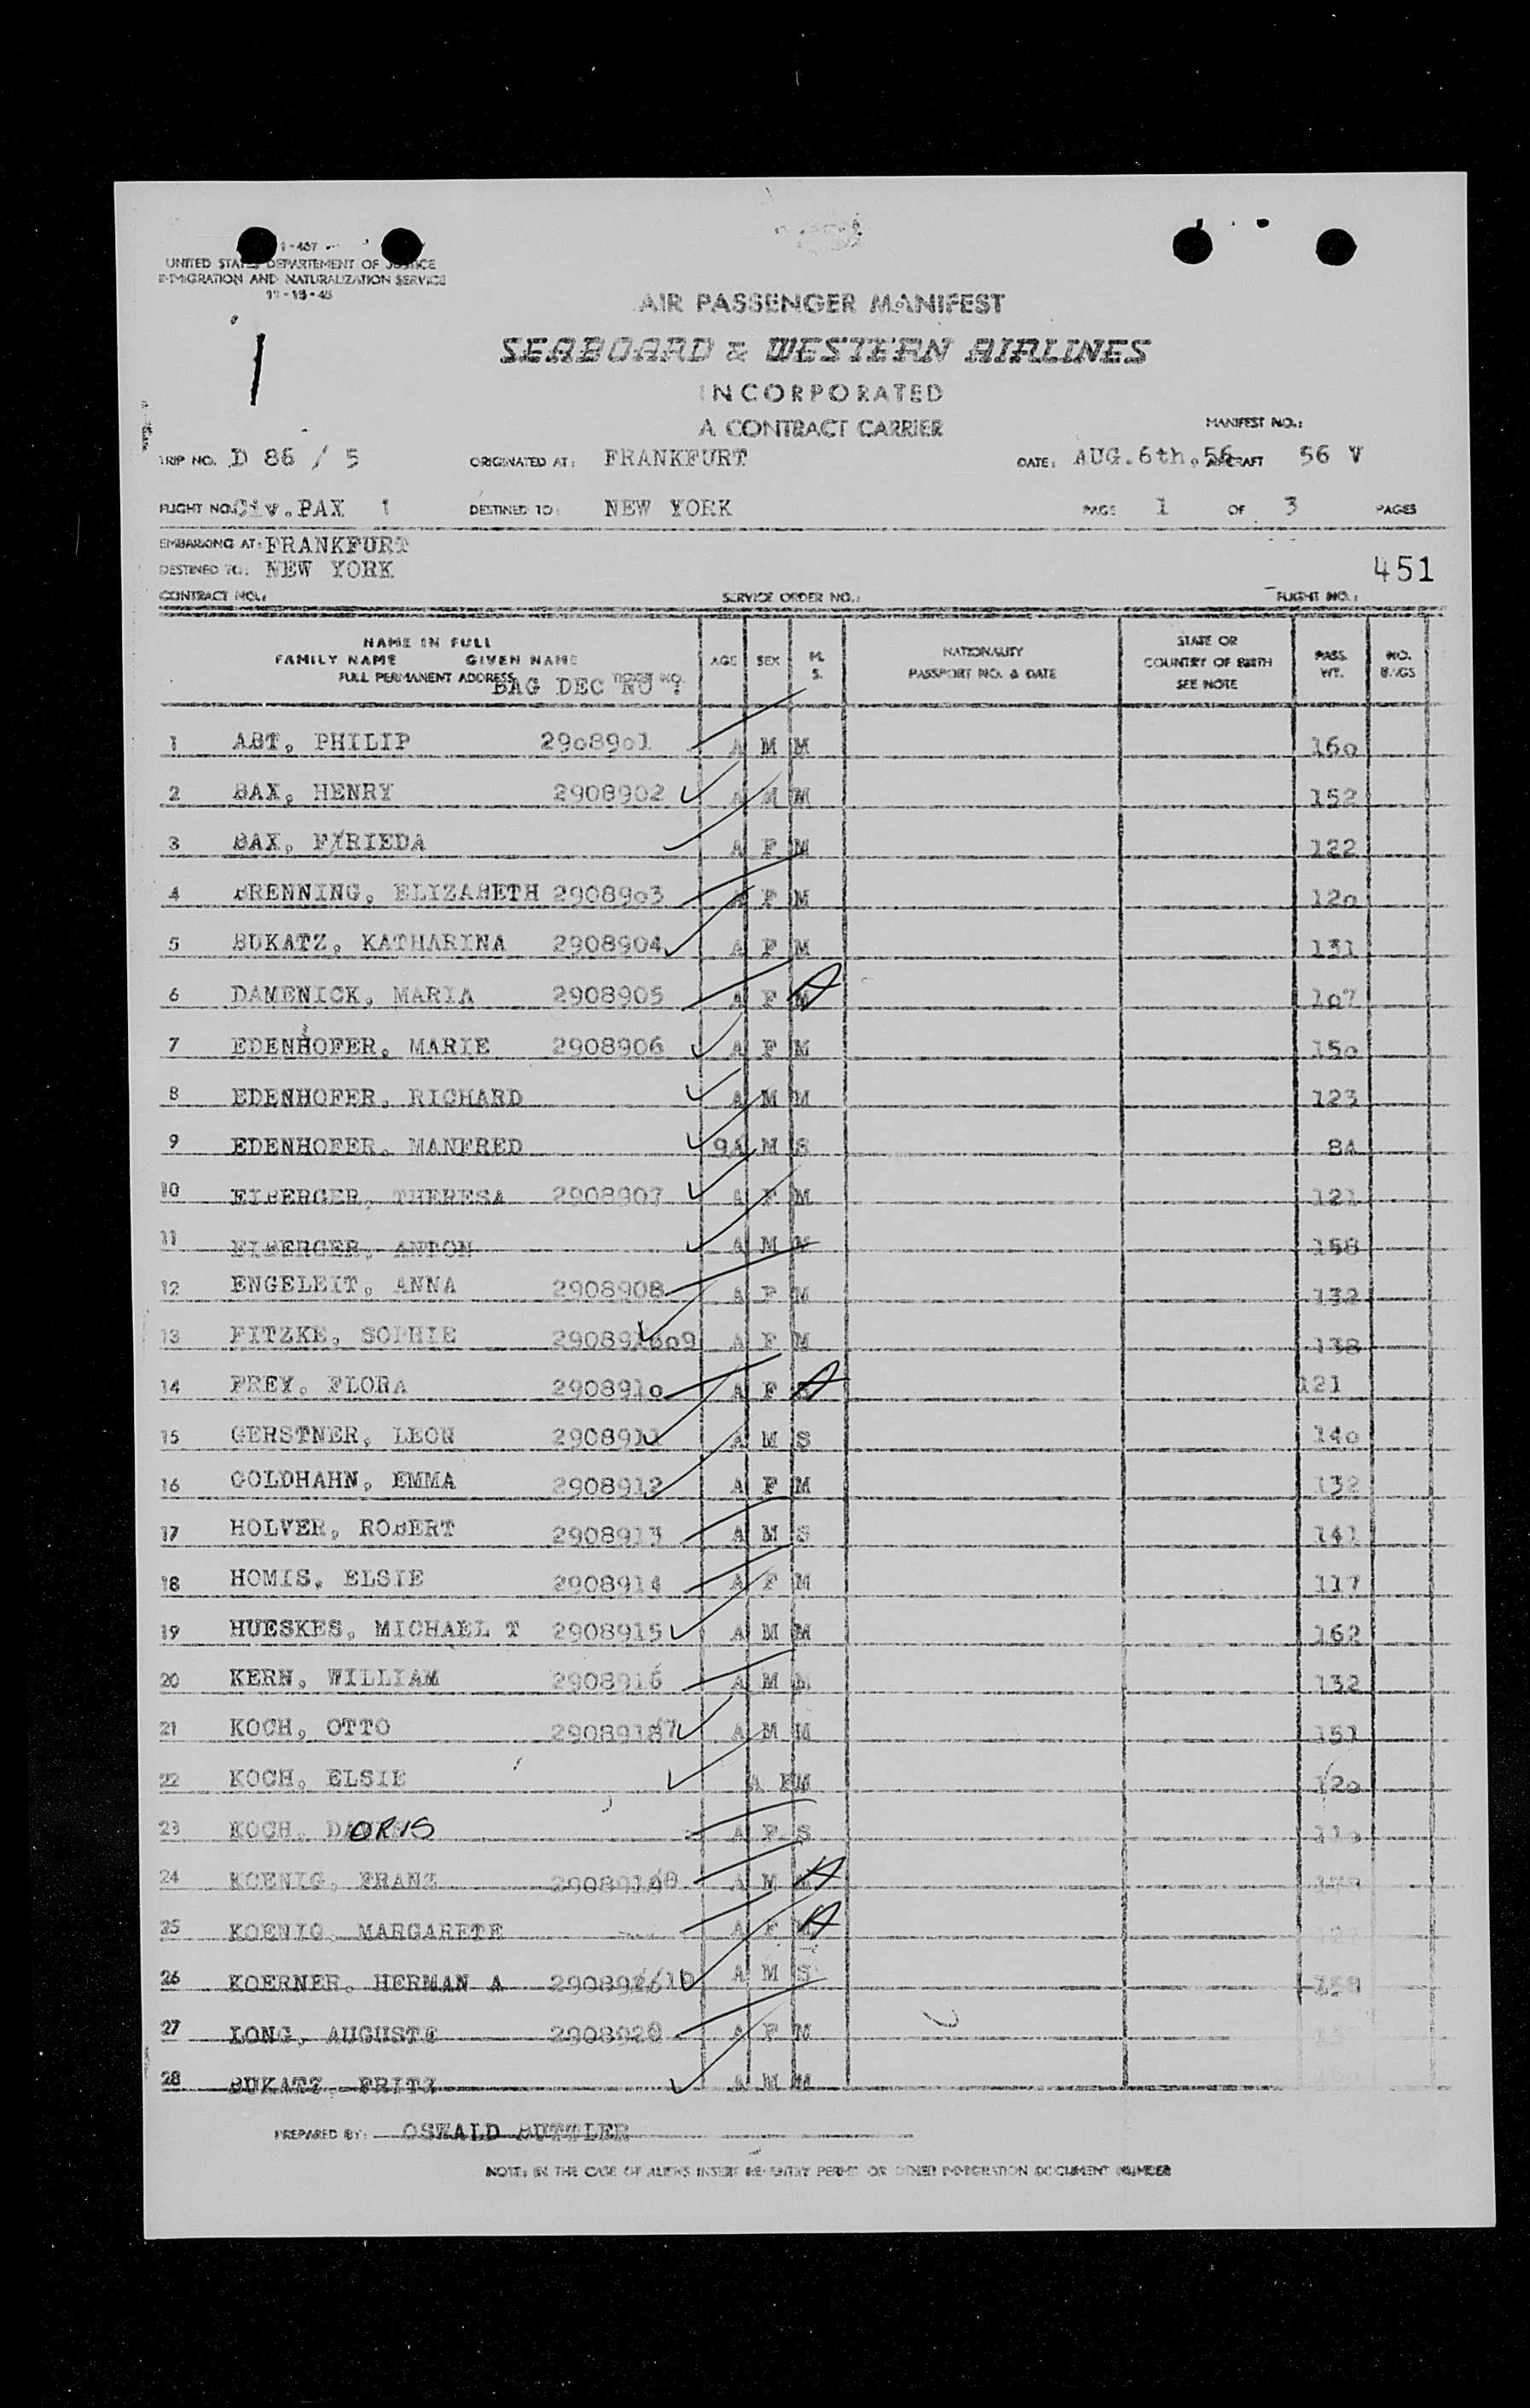 I-467
UNITED STATES DEPARTEMENT OF JUSTICE
IMMIGRATION AND NATURALIZATION SERVICE
11-15-45
AIR PASSENGER MANIFEST
SEABOARD & WESTERN AIRLINES
INCORPORATED
A CONTRACT CARRIER
MANIFEST NO.:
TRIP NO. D 86 / 5 ORIGINATED AT: FRANKFURT DATE: AUG.6th,56 AIRCRAFT 56 V
FLIGHT NO. Civ.PAX 1 DESTINED TO: NEW YORK PAGE 1 OF 3 PAGES
EMBARKING AT: FRANKFURT
DESTINED TO: NEW YORK 451
CONTRACT NO.: SERVICE ORDER NO.: FLIGHT NO.:
NAME IN FULL
FAMILY NAME GIVEN NAME AGE SEX M. S. NATIONALITY PASSPORT NO. & DATE STATE OR COUNTRY OF BIRTH SEE NOTE PASS. WT. NO. BAGS
FULL PERMANENT ADDRESS TICKET NO.
BAG DEC NO :
1 ABT, PHILIP 2908901 A M M 160
2 BAX, HENRY 2908902 A M M 152
3 BAX, F/RIEDA A F M 122
4 BRENNING, ELIZABETH 2908903 A F M 120
5 BUKATZ, KATHARINA 2908904 A F M 131
6 DAMENICK, MARIA 2908905 A F M 107
7 EDENHOFER, MARIE 2908906 A F M 150
8 EDENHOFER, RICHARD A M M 123
9 EDENHOFER, MANFRED 9 M S 84
10 EIBERGER, THERESA 2908907 A F M 121
11 EIBERGER, ANTON A M M 158
12 ENGELEIT, ANNA 2908908 A F M 132
13 FITZKE, SOPHIE A F M 138
14 FREY, FLORA 2908910 A F 121
15 GERSTNER, LEON 2908911 A M S 140
16 GOLDHAHN, EMMA 2908912 A F M 132
17 HOLVER, ROBERT 2908913 A M S 141
18 HOMIS, ELSIE 2908914 A F M 117
19 HUESKES, MICHAEL T 2908915 A M M 162
20 KERN, WILLIAM 2908916 A M M 132
21 KOCH, OTTO A M M 151
22 KOCH, ELSIE A F M 120
23 KOCH, DORIS A F S 110
24 KOENIG, FRANZ A M
25 KOENIG, MARGARETE A F
26 KOERNER, HERMAN A A M S
27 LONG, AUGUSTE 2908920 A F M
28 BUKATZ, FRITZ A M M
PREPARED BY: OSWALD BUTTLER
NOTE: IN THE CASE OF ALIENS INSERT RE-ENTRY PERMIT OR OTHER IMMIGRATION DOCUMENT NUMBER